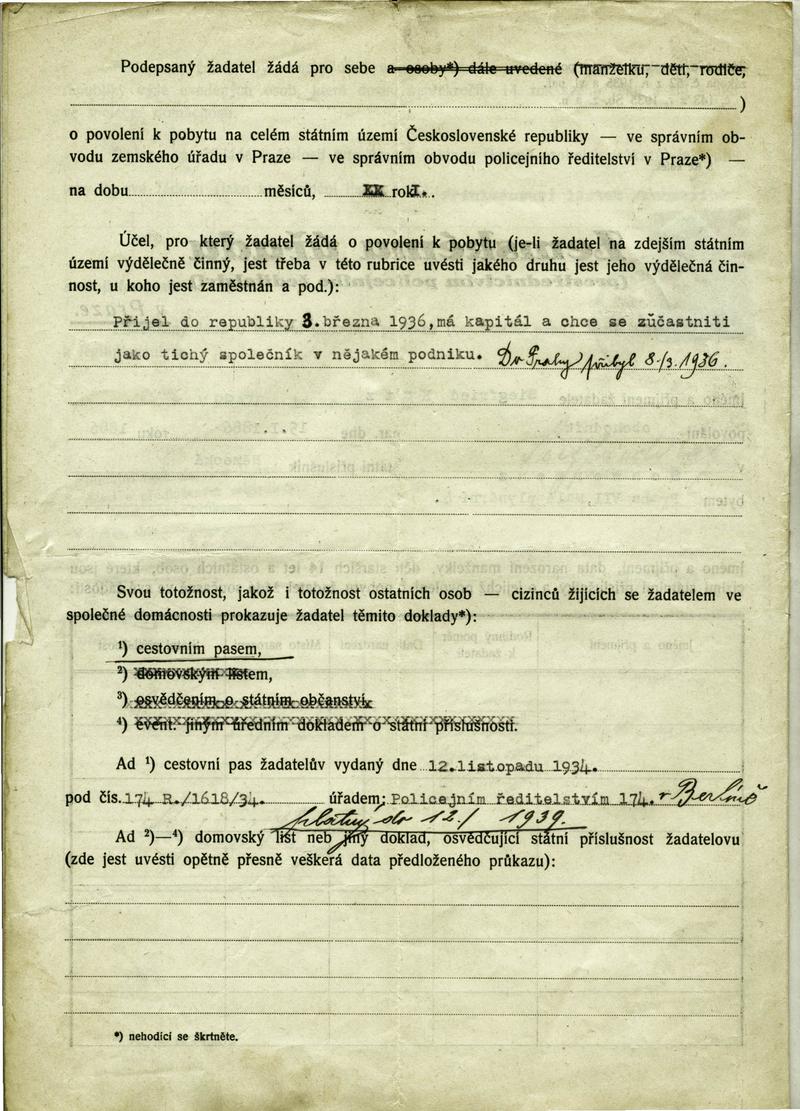 Podepsaný žadatel žádá pro sebe a osoby*) dále uvedené (manželku, děti, rodiče,
)
o povolení k pobytu na celém státním území Československé republiky — ve správním ob-
vodu zemského úřadu v Praze — ve správním obvodu policejního ředitelství v Praze*) —
na dobu měsíců, XX rok
Účel, pro který žadatel žádá o povolení k pobytu (je-li žadatel na zdejším státním
území výdělečně činný, jest třeba v této rubrice uvésti jakého druhu jest jeho výdělečná čin-
nost, u koho jest zaměstnán a pod.):
Přijel do republiky 3.března 1936,má kapitál a chce se zůčastniti
jako tichý společník v nějakém podniku. Do Prahy přibyl 8./3.1936.
Svou totožnost, jakož i totožnost ostatních osob — cizinců žijících se žadatelem ve
společné domácnosti prokazuje žadatel těmito doklady*):
¹) cestovním pasem,
²) domovským listem,
³) osvědčením o státním občanství,
⁴) event. jiným úředním dokladem o státní příslušnosti.
Ad ¹) cestovní pas žadatelův vydaný dne 12.listopadu 1934.
pod čís. 174 R./1618/34. úřadem: Policejním ředitelstvím 174. v Berlíně
platný do 12./ 1939.
Ad ²)—⁴) domovský list neb jiný doklad, osvědčující státní příslušnost žadatelovu
(zde jest uvésti opětně přesně veškerá data předloženého průkazu):
*) nehodící se škrtněte.